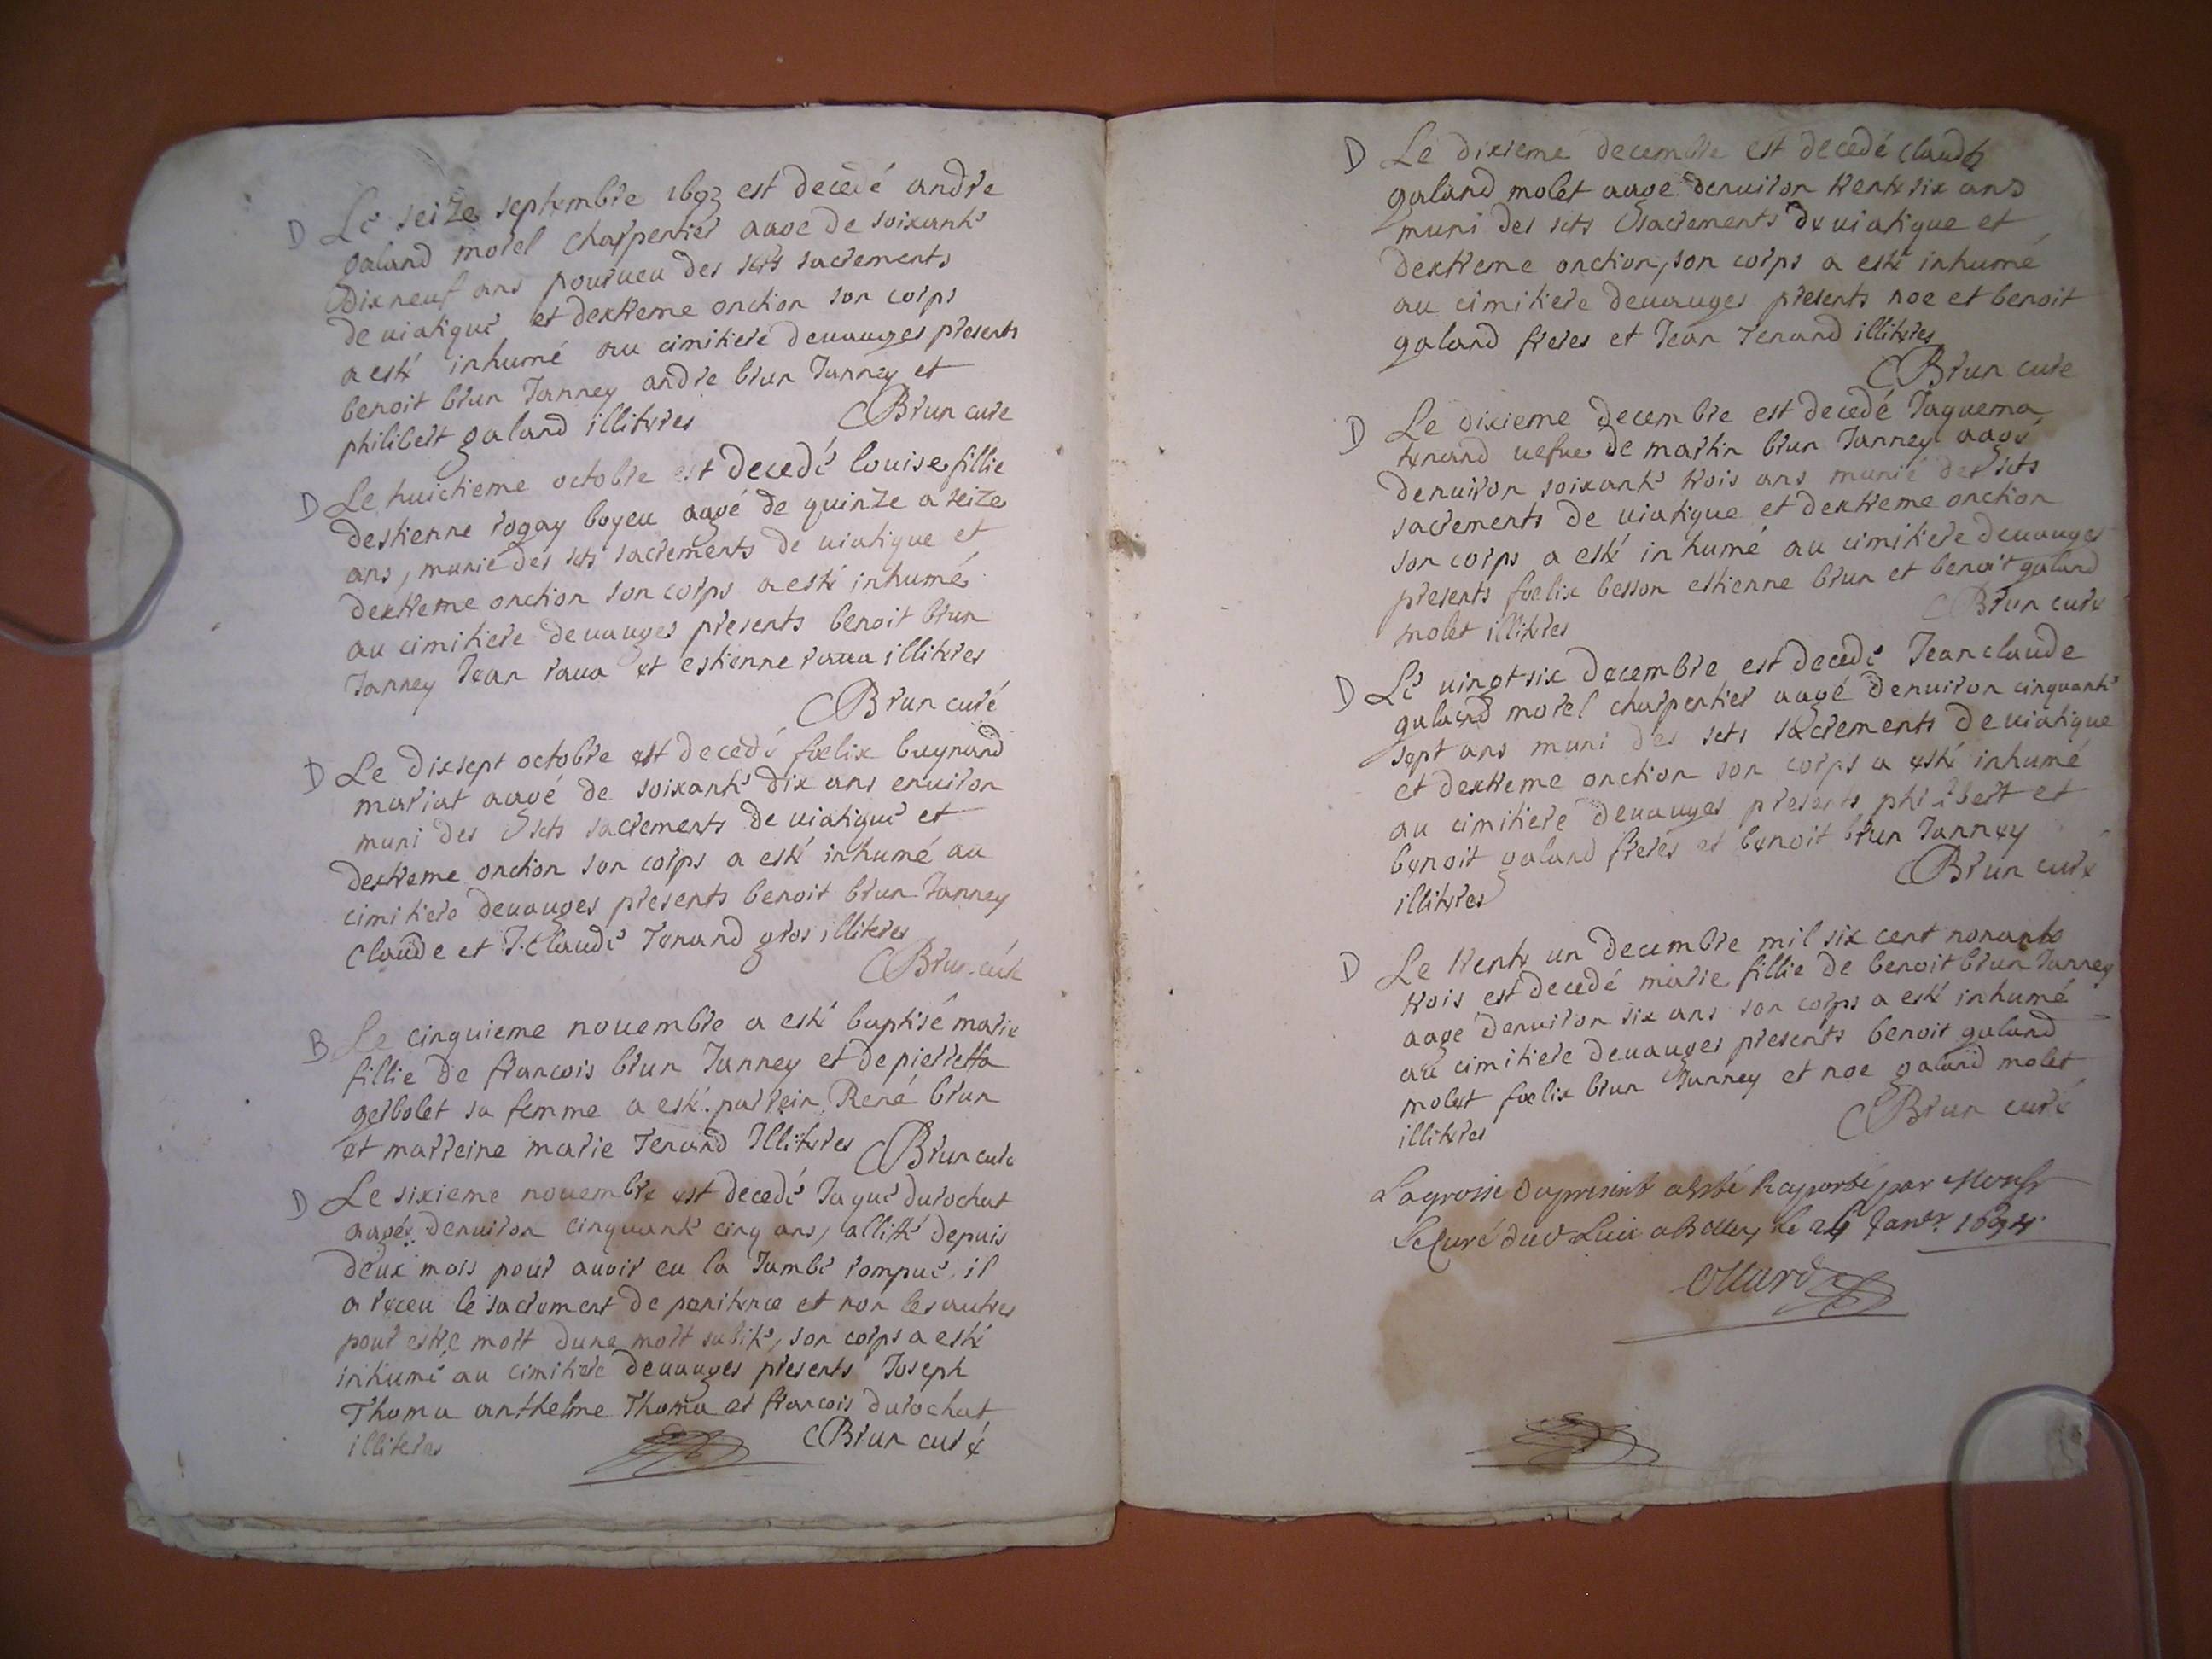 D Le seize septembre 1693 est decedé andre
galand morel charpentier aagé de soixante
dixneuf ans pourueu des sts sacrements
de uiatique et dextreme onction son corps
a esté inhumé au cimitiere deuauges presents
benoit brun Janney andre brun Janney et
philibert galand illiteres CBrun curé
D Le huictieme octobre est decedé louise fillie
destienne rogay boyeu aagé de quinze a seize
ans, munie des sts sacrements de uiatique et
dextreme onction son corps a esté inhumé
au cimitiere deuauges presents benoit brun
Janney Jean raua et estienne raua illiteres
CBrun curé
D Le dixsept octobre est decedé foelix buynand
mariat aagé de soixante dix ans enuiron
muni des sts sacrements de uiatique et
dextreme onction son corps a esté inhumé au
cimitiere deuauges presents benoit brun Janney
Claude et J. Claude Tenand gros illiteres
CBrun curé
B Le cinquieme nouembre a esté baptisé marie
fillie de francois brun Janney et de pierretta
gerbolet sa femme a esté parrein René brun
et marreine marie Tenand Illiteres CBrun curé
D Le sixieme nouembre est decedé Jaque durochat
aagé denuiron cinquante cinq ans, allitté depuis
deux mois pour auoir eu la Jambe rompue il
a receu le sacrement de penitence et non les autres
pour estre mort dune mort subite, son corps a esté
inhumé au cimitiere deuauges presents Joseph
Thoma anthelme Thoma et francois durochat
illiteres CBrun curé
D Le dixieme decembre est decedé claude
galand molet aagé denuiron trente six ans
muni des sts sacrements de uiatique et
dextreme onction, son corps a esté inhumé
au cimitiere deuauges presents noe et benoit
galand freres et Jean Tenand illiteres
CBrun curé
D Le dixieme decembre est decedé Jaquema
tenand uefue de martin brun Janney aagé
denuiron soixante trois ans munie des sts
sacrements de uiatique et dextreme onction
son corps a esté inhumé au cimitiere deuauges
presents foelix besson estienne brun et benoit galand
molet illiteres CBrun curé
D Le uingt six decembre est decedé Jean claude
galand morel charpentier aagé denuiron cinquante
sept ans muni des sts sacrements de uiatique
et dextreme onction son corps a esté inhumé
au cimitiere deuauges presents philibert et
benoit galand freres et benoit brun Janney
illiteres CBrun curé
D Le trente un decembre mil six cent nonante
trois est decedé marie fillie de benoit brun Janney
aagé denuiron six ans son corps a esté inhumé
au cimitiere deuauges presents benoit galand
molet foelix brun Janney et noe galand molet
illiteres CBrun curé
La grosse du present a esté Raporté par Monsr
le Curé dud Lieu a Belley le 24 Janvr. 1694